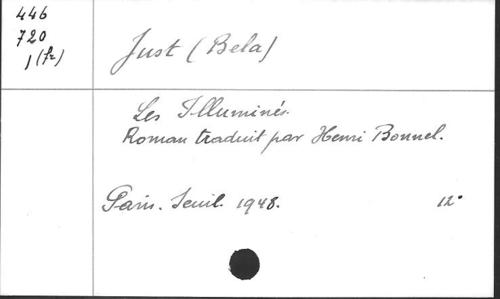 446
720
1 (fr)
Just (Bela)
Les Illuminés.
Roman traduit par Henri Bonnel.
Paris. Seuil. 1948. 12°